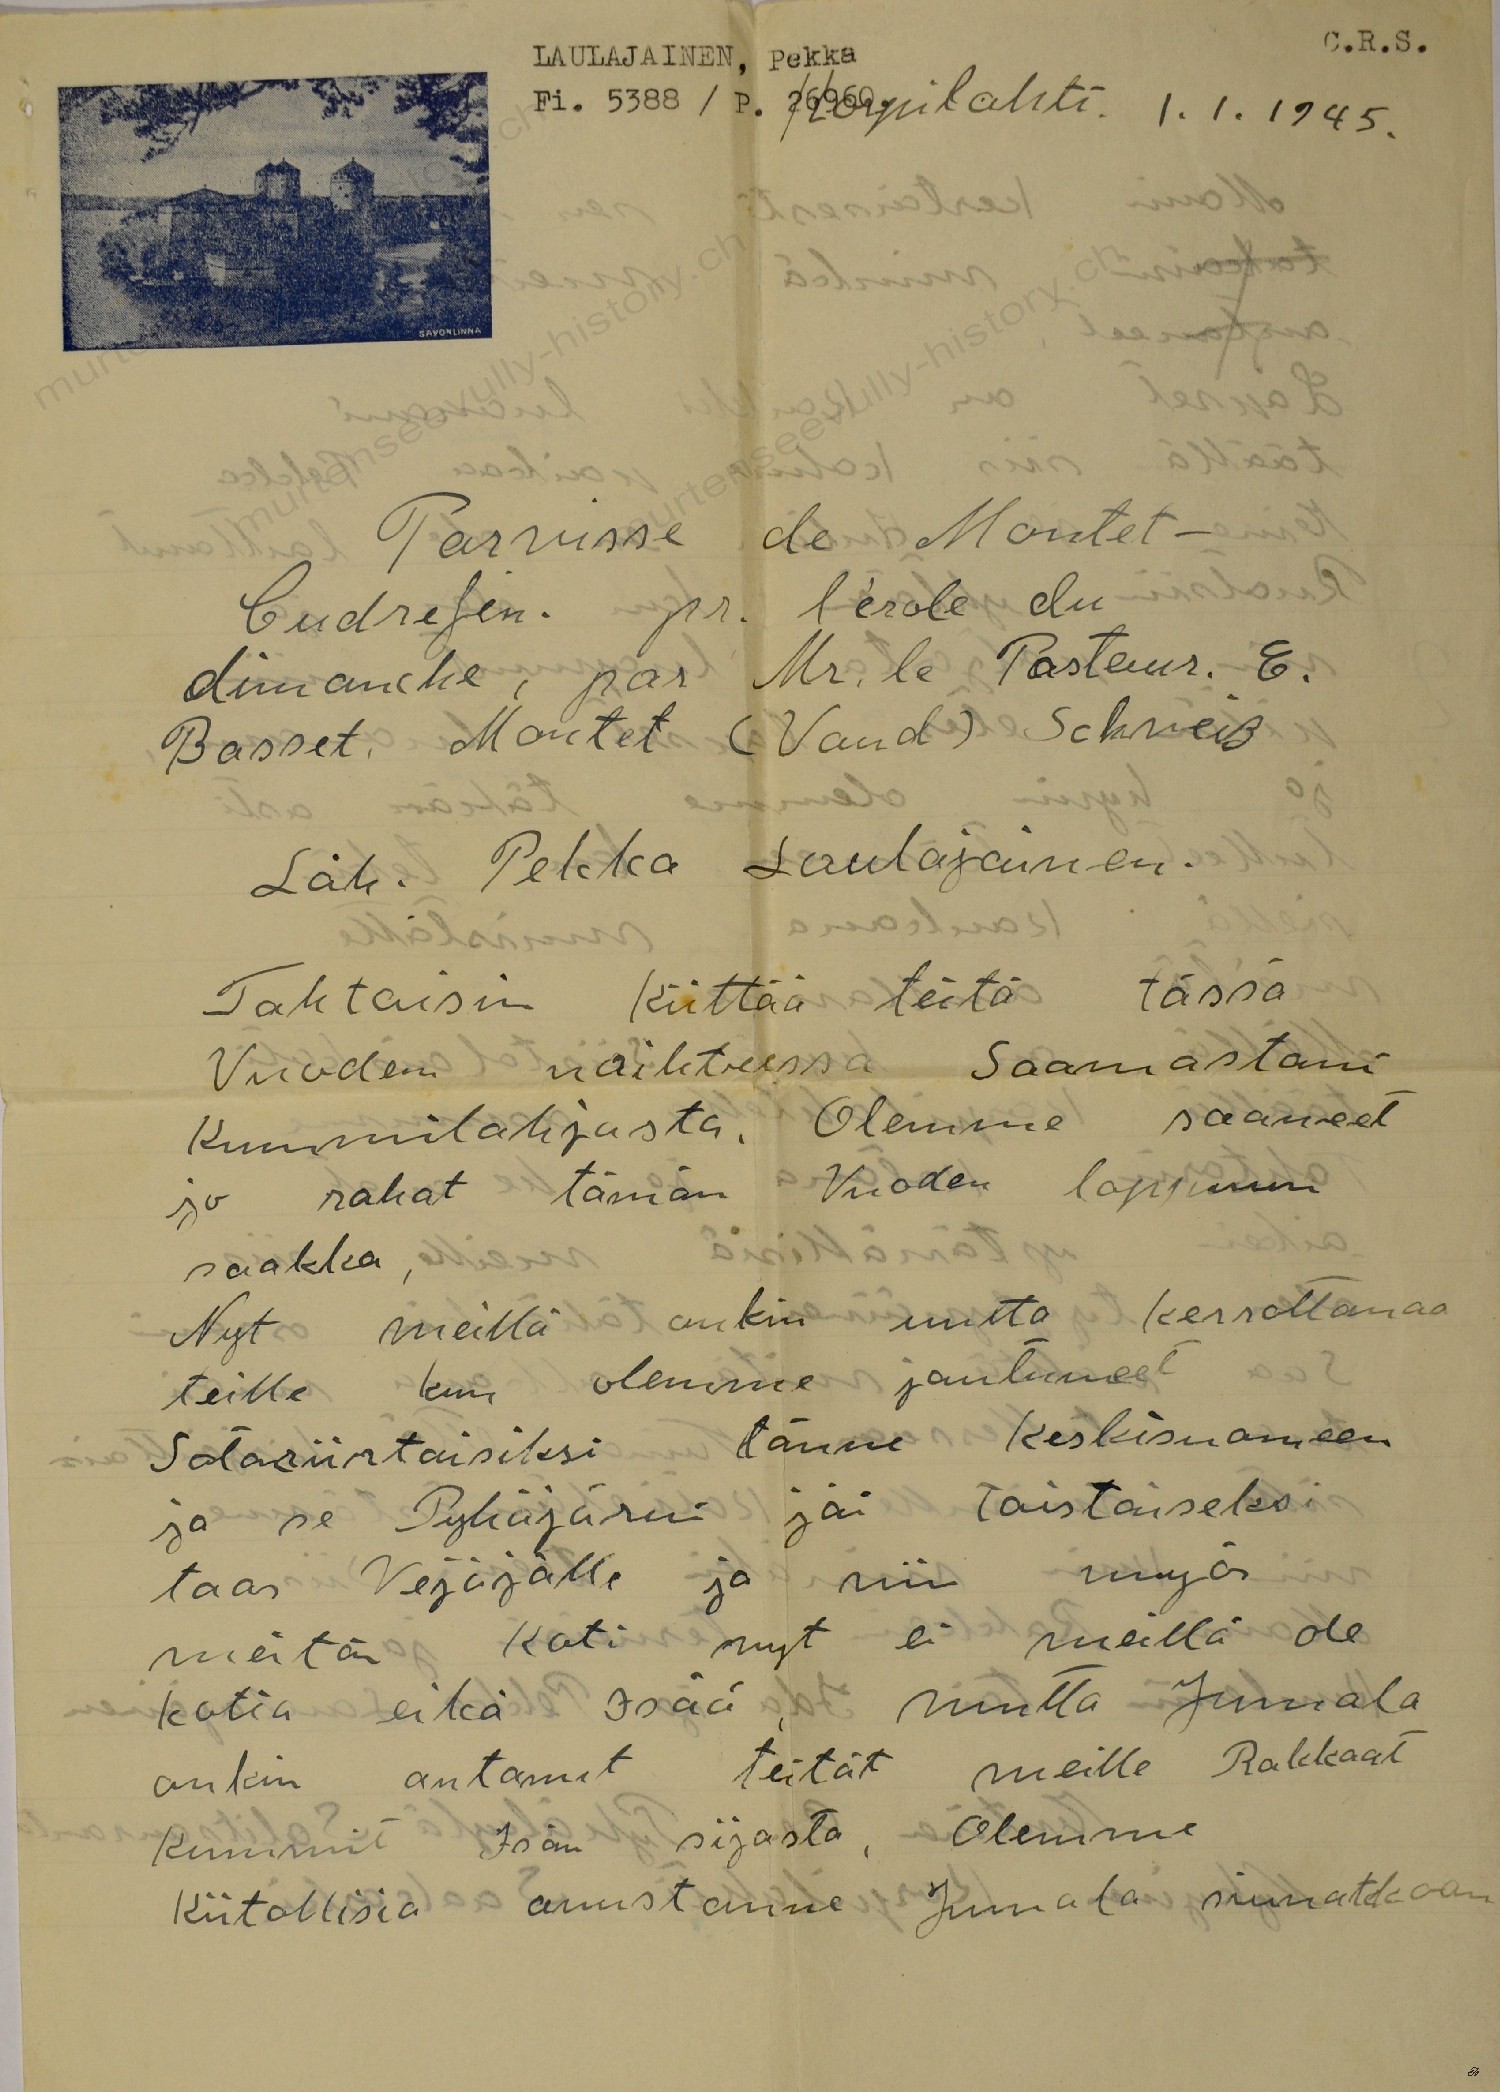 LAULAJAINEN, Pekka
C.R.S.
Fi. 5388 / P. 26960
Korpilahti. 1.1.1945.
SAVONLINNA
Parvisse de Montet-
Cudrefin. pr. l'érole du
dimanche, par Mr. le Pasteur. E.
Basset. Montet (Vaud) Schweiz
Läh. Pekka Laulajainen.
Tahtoisin Kiittää teitä tässä
Vuoden vaihteessa Saamastani
Kummilahjasta. Olemme saaneet
jo rahat tämän Vuoden loppuun
saakka,
Nyt meillä onkin uutta kerrottanaa
teille kun olemme joutuneet
Sotasiirtoisiksi tänne Keskisuomeen
ja se Pyhäjärvi jäi toistaiseksi
taas Vejäjälle ja niin myös
meitän koti nyt ei meillä ole
kotia eikä Isää, mutta Jumala
onkin antanut teität meille Rakkaat
Kummit Isän sijasta, Olemme
Kiitollisia avustanne Jumala siunatkoon